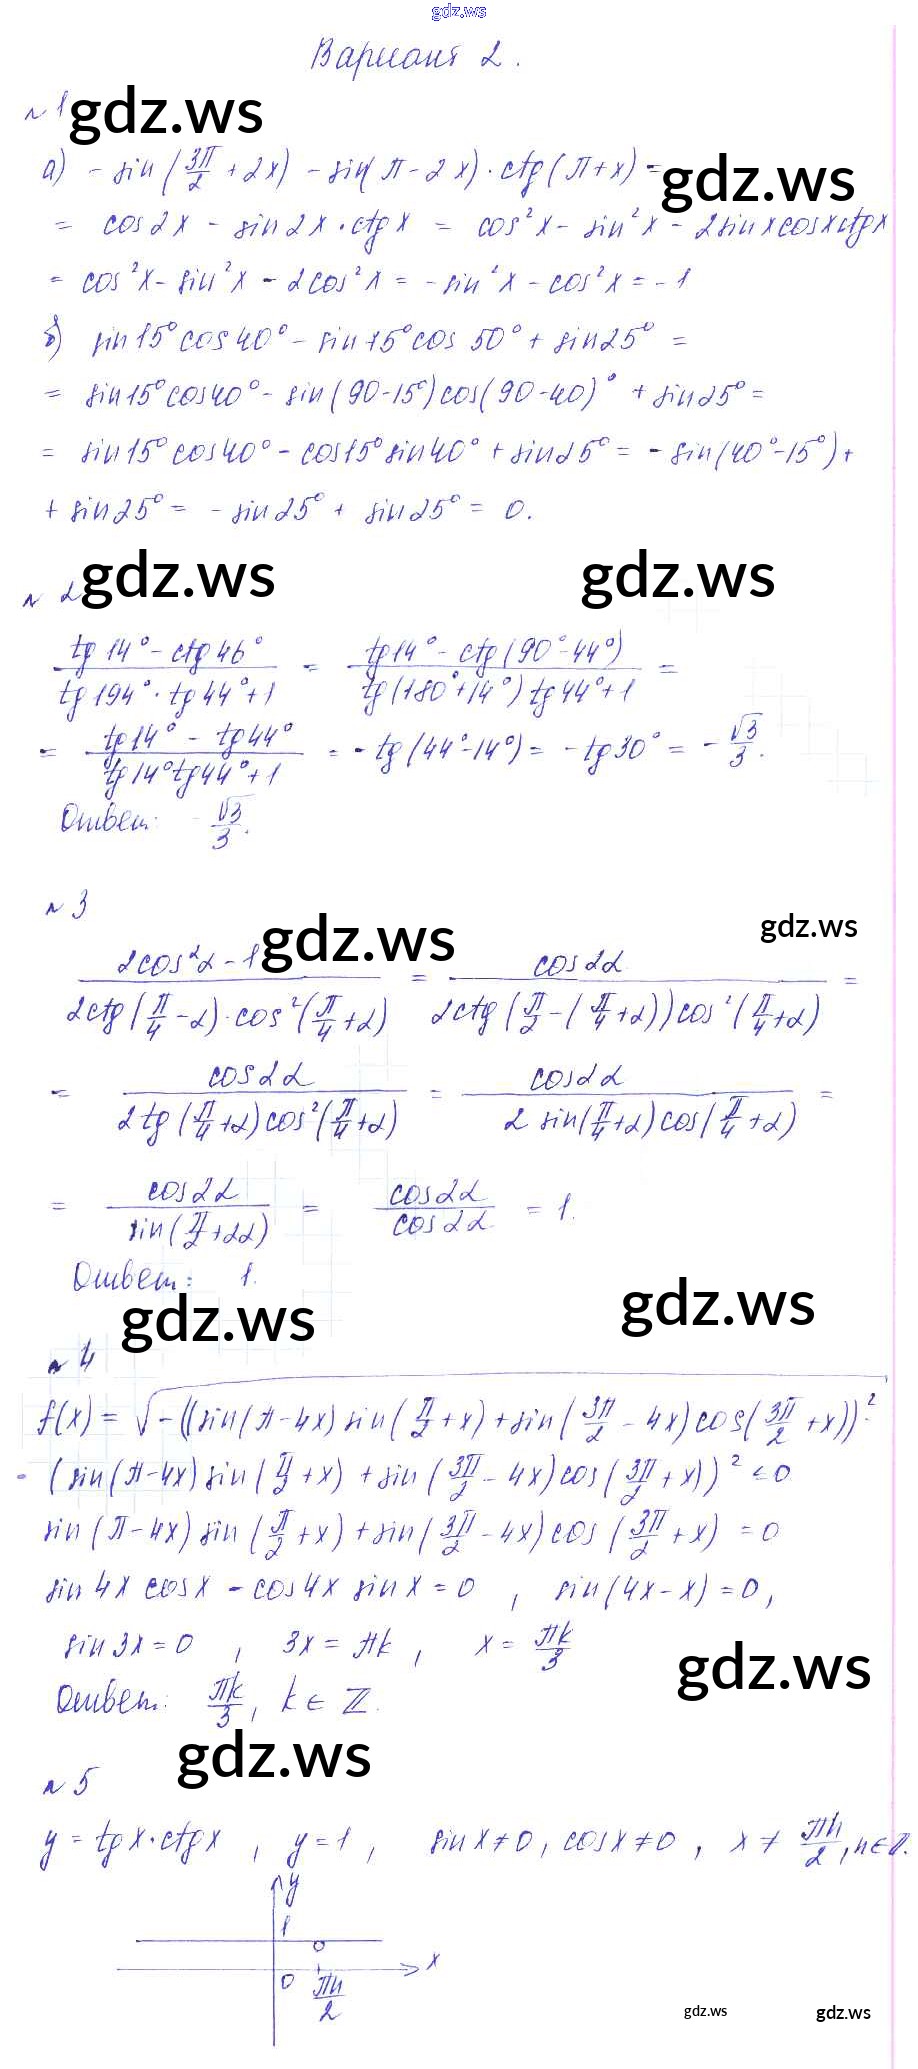 gdz.ws
Вариант 2.
№ 1 gdz.ws
а) - sin(3π/2 + 2x) - sin(π - 2x) · ctg(π + x) = gdz.ws
= cos2x - sin2x · ctgx = cos²x - sin²x - 2sinxcosxctgx
= cos²x - sin²x - 2cos²x = -sin²x - cos²x = -1
б) sin15°cos40° - sin75°cos50° + sin25° =
= sin15°cos40° - sin(90-15°)cos(90-40)° + sin25° =
= sin15°cos40° - cos15°sin40° + sin25° = - sin(40°-15°) +
+ sin25° = - sin25° + sin25° = 0.
№ 2 gdz.ws gdz.ws
(tg14° - ctg46°)/(tg194° · tg44° + 1) = (tg14° - ctg(90°-44°))/(tg(180°+14°)tg44°+1) =
= (tg14° - tg44°)/(tg14°tg44°+1) = - tg(44°-14°) = - tg30° = - √3/3.
Ответ: - √3/3.
№ 3 gdz.ws gdz.ws
(2cos²α - 1)/(2ctg(π/4 - α) · cos²(π/4 + α)) = cos2α/(2ctg(π/2 - (π/4 + α))cos²(π/4 + α)) =
= cos2α/(2tg(π/4 + α)cos²(π/4 + α)) = cos2α/(2 sin(π/4 + α)cos(π/4 + α)) =
= cos2α/sin(π/2 + 2α) = cos2α/cos2α = 1.
Ответ: 1.
gdz.ws gdz.ws
№ 4
f(x) = √-((sin(π-4x)sin(π/2 + x) + sin(3π/2 - 4x)cos(3π/2 + x))²
- (sin(π-4x)sin(π/2 + x) + sin(3π/2 - 4x)cos(3π/2 + x))² ≤ 0
sin(π-4x)sin(π/2 + x) + sin(3π/2 - 4x)cos(3π/2 + x) = 0
sin4x cosx - cos4x sinx = 0, sin(4x-x) = 0,
sin3x = 0, 3x = πk, x = πk/3
Ответ: πk/3, k ∈ ℤ. gdz.ws
gdz.ws
№ 5
y = tgx · ctgx, y = 1, sinx ≠ 0, cosx ≠ 0, x ≠ πn/2, n ∈ ℤ.
y
1
x
0 πn/2
gdz.ws gdz.ws